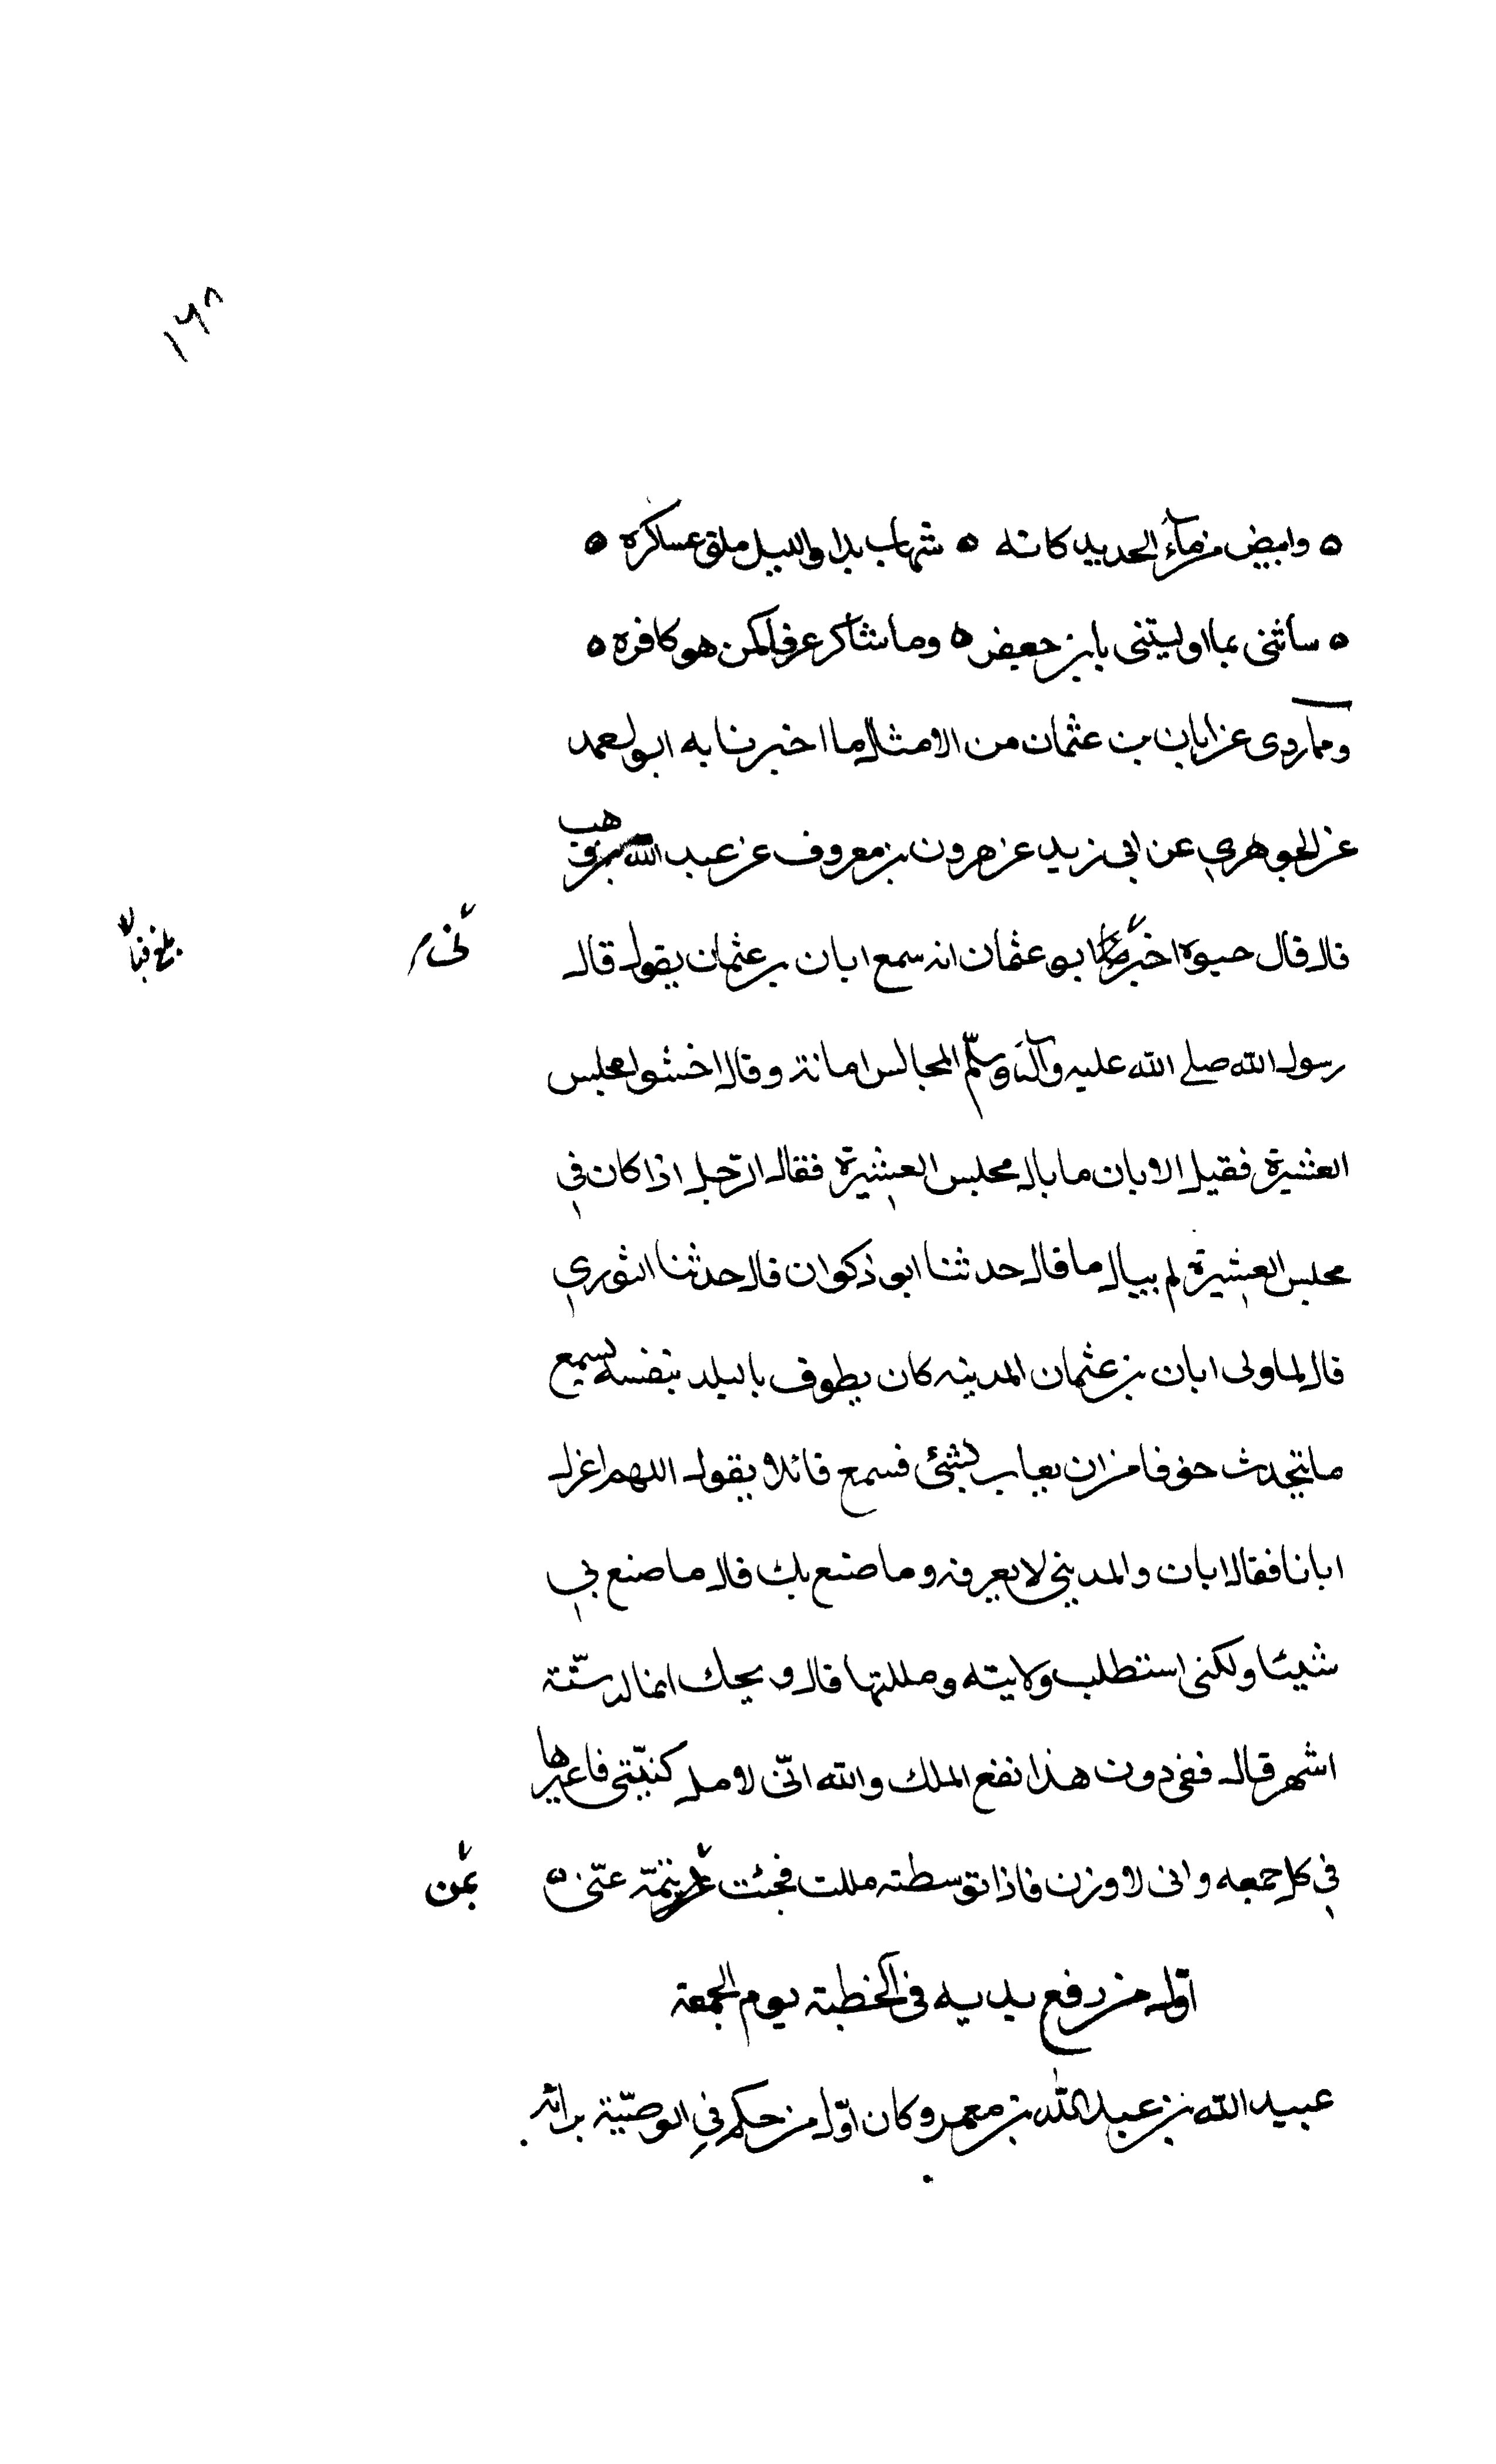 ١٦٨
ه وابيض من مآء الحديد كانه ه شهاب بدا والليل ملق عساكره ه
ه ساثنى بما اوليتنى يابن جعفر ه وما شاكر عرفا كمن هو كافره ه
ومما روى عن ابان بن عثمان من الامثال ما اخبرنا به ابو احمد
عن الجوهري عن ابى زيد عن هرون بن معروف عن عبد الله بن وهب
قال قال حيوة اخبرنا ابو عثمان انه سمع ابان بن عثمان يقول قال
نى
بلغ
رسول الله صلى الله عليه وآله وسلّم المجالس امانة وقال اخشوا مجلس
العشيرة فقيل لابان ما بال مجلس العشيرة فقال الرّجل اذا كان في
مجلس العشيرة لم يبال ما قال حدثنا ابو ذكوان قال حدثنا الثوري
قال لما ولى ابان بن عثمان المدينه كان يطوف بالبلد بنفسه يسمع
ما يتحدث خوفا من ان يعاب بشئ فسمع قائلا يقول اللهم اعزل
ابانا فقال ابان والمديني لا يعرفه وما صنع بك قال ما صنع بي
شيئا ولكنى استطلت ولايته ومللتها قال ويحك انما له ستّة
اشهر قال ففي دون هذا نفع الملك والله انّى لامل كنيتي فاغيرها
في كل جمعه وانى لاوزن فاذا توسطته مللت فجئت يتمّه عنّى ه
بمن
اوّل من رفع يديه فى الخطبة يوم الجمعة
عبيد الله بن عبد الله بن معمر وكان اوّل من حكم في الوصيّة برائه